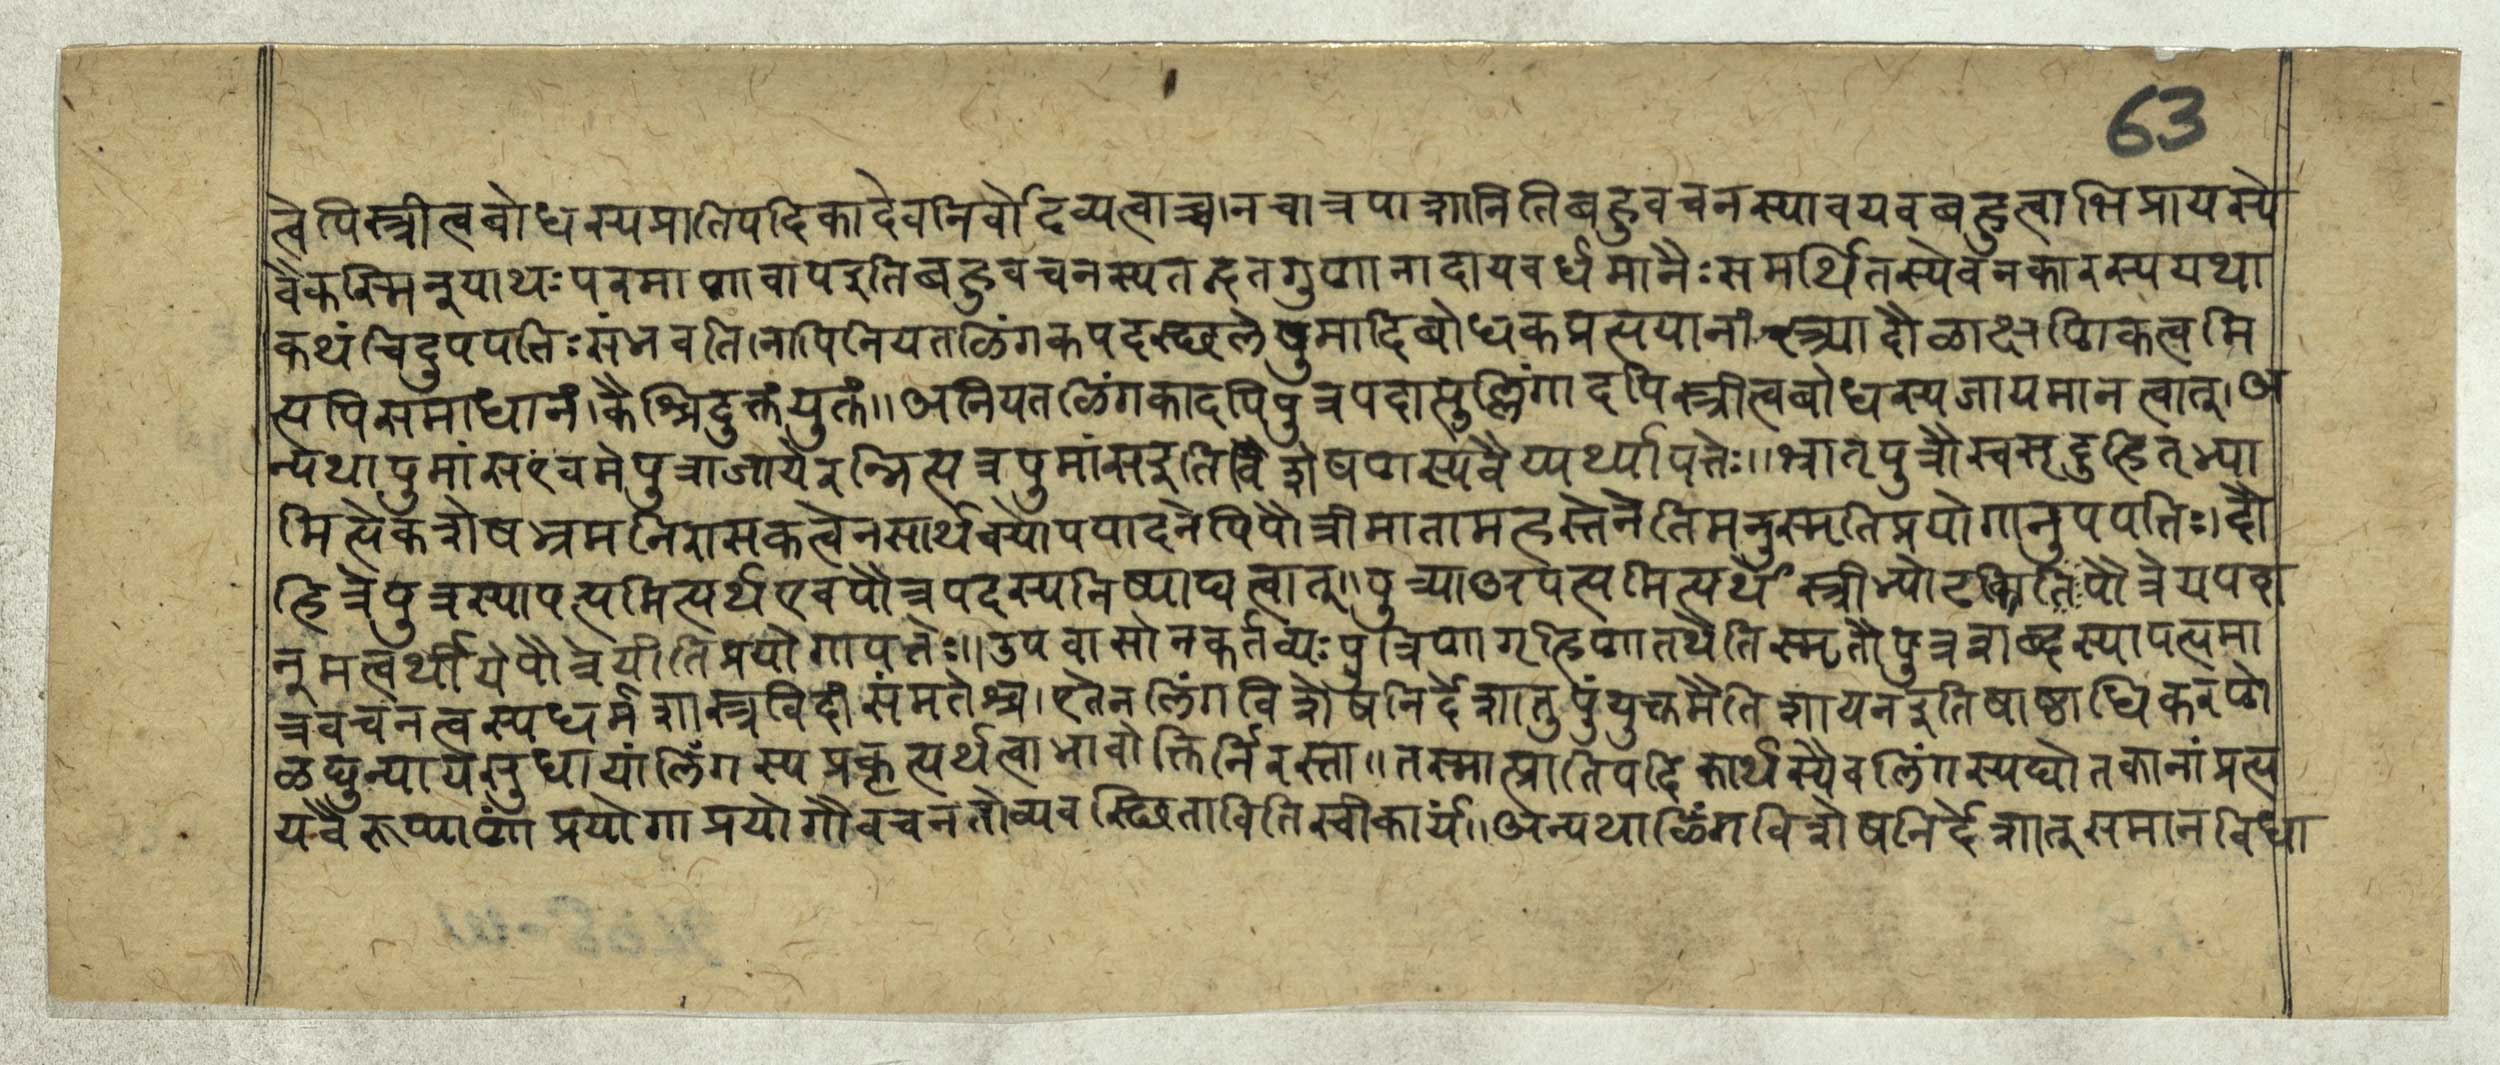 63
त्वेपिस्त्रीत्वबोधस्यप्रातिपदिकादेवनिर्वोदिव्यत्वाच्च।नचात्रपाशानितिबहुवचनस्यावयवबहुत्वाभिप्रायस्ये
वैकस्मिन्नुयाथःपरमाणावापइतिबहुवचनस्यतद्गतगुणानादायवर्धमानैःसमर्थितस्येवनकारस्ययथा
कथंचिदुपपत्तिःसंभवति।नापिनियतळिंगकपदस्छलेषुमादिबोधकप्रत्ययानांस्त्र्यादौळाक्षणिकत्वमि
त्यपिसमाधानं।कैश्चिदुक्तंयुक्तं॥अनियतळिंगकादपिपुत्रपदात्पुल्लिंगादपिस्त्रीत्वबोधस्यजायमानत्वात्।अ
न्यथापुमांसएवमेपुत्राजायेरन्नित्यत्रपुमांसइतिविशेषणस्यवैय्यर्थ्यापत्तेः॥भ्रातृपुत्रौस्वसृदुहितृभ्या
मित्येकशेषभ्रमनिरासकत्वेनसार्थक्योपपादनेपिपौत्रीमातामहस्तेनेतिमनुस्मृतिप्रयोगानुपपत्तिः।दौ
हित्रेपुत्रस्यापत्यमित्यर्थएवपौत्रपदस्यनिष्पाद्यत्वात्॥पुत्र्याअपत्यमित्यर्थेस्त्रीभ्योढकितिपौत्रेयपदा
नुमत्वर्थीयेपौत्रेयीतिप्रयोगापत्तेः॥उपवासोनकर्तव्यःपुत्रिणागृहिणातथेतिस्मृतौपुत्रशब्दस्यापत्यमा
त्रवचनत्वस्यधर्मशास्त्रविदांसंमतेश्च।एतेनलिंगविशेषनिर्देशात्तुपुंयुक्तमैतिशायनइतिषाष्ठाधिकरणे
ळघुन्यायसुधायांलिंगस्यप्रकृत्यर्थत्वाभावोक्तिर्निरस्ता॥तस्मात्प्रातिपदिकार्थस्यैवलिंगस्यद्योतकानांप्रत्य
यवैरूप्याणांप्रयोगाप्रयोगौवचनतोव्यवस्छितावितिस्वीकार्यं॥अन्यथाळिंगविशेषनिर्देशात्समानविधा